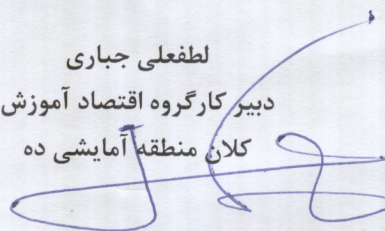 لطفعلی جباری
دبیر کارگروه اقتصاد آموزش
کلان منطقه آمایشی ده